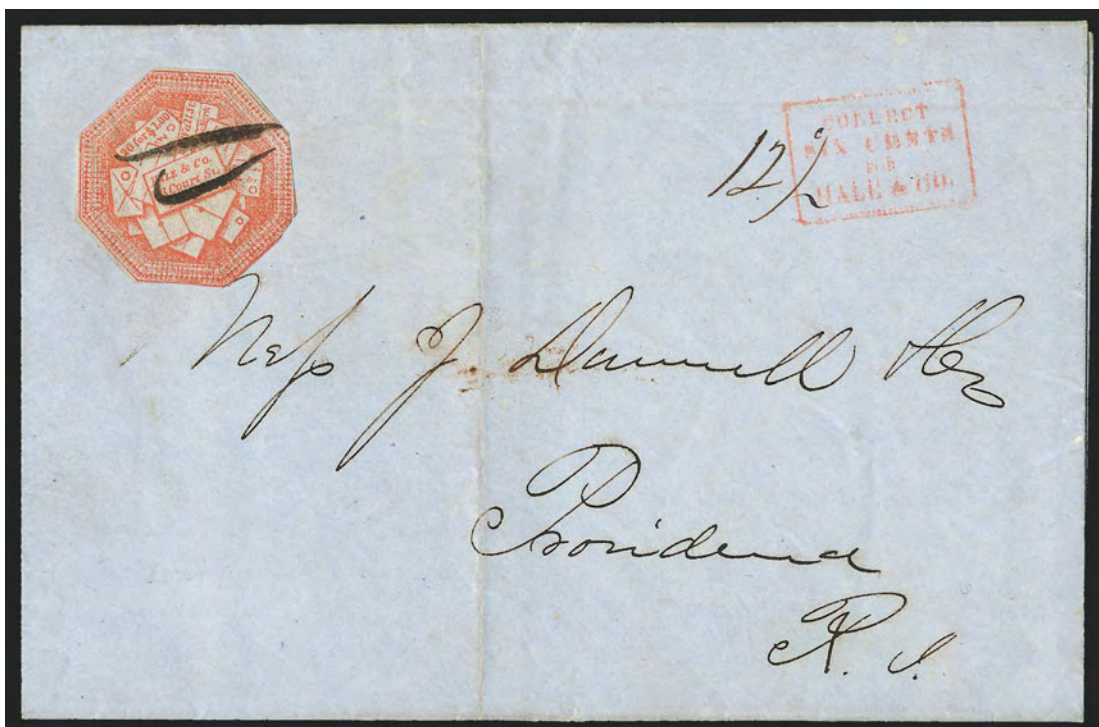 20 for $1.00
HALE & Co.
Court St.
COLLECT
SIX CENTS
FOR
HALE & CO.
12½
Mess J. Dunnell &
Providence
R. I.